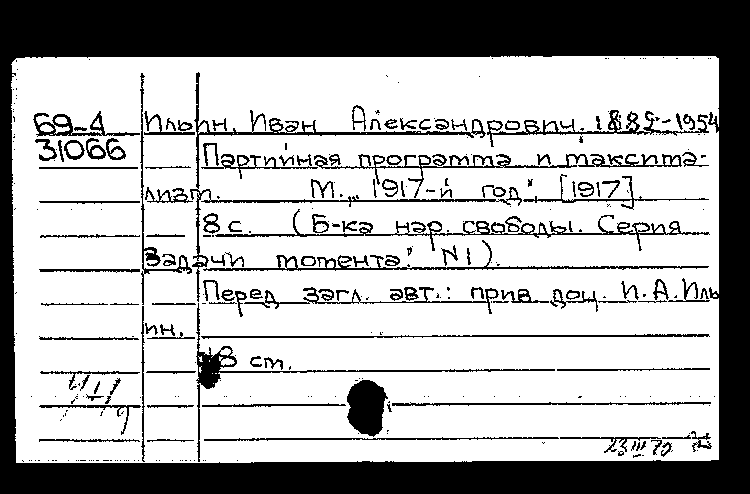 69-4 Ильин, Иван Александрович. 1882-1954
31066 Партийная программа и максима-
лизм. М., „1917-й год", [1917].
8 с. (Б-ка нар. свободы. Серия
Задачи момента" N1).
Перед загл. авт.: прив. доц. И. А. Иль
ин.
8 ст.
23 III 72